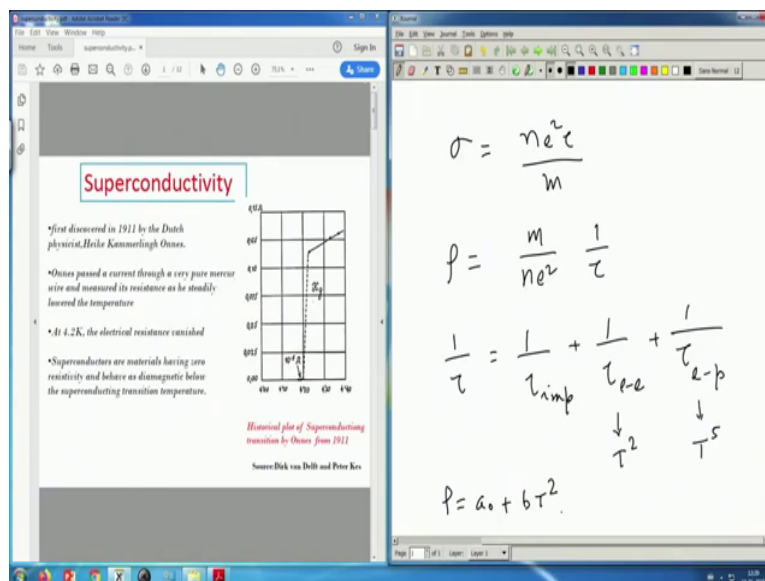 superconductivity.pdf - Adobe Acrobat Reader DC
File Edit View Window Help
Home Tools superconductivity.p... × Sign In
1 / 12 75.1% Share
Superconductivity
•first discovered in 1911 by the Dutch
physicist,Heike Kammerlingh Onnes.
•Onnes passed a current through a very pure mercur
wire and measured its resistance as he steadily
lowered the temperature
•At 4.2K, the electrical resistance vanished
•Superconductors are materials having zero
resistivity and behave as diamagnetic below
the superconducting transition temperature.
0,10
0,075
0,05
0,025
0,00
Hg
Historical plot of Superconductiong
transition by Onnes from 1911
Source:Dirk van Delft and Peter Kes
Journal
File Edit View Journal Tools Options Help
Sans Normal 12
σ = ne²τ / m
ρ = m / ne² 1 / τ
1 / τ = 1 / τ imp + 1 / τ e-e + 1 / τ e-p
↓ T² ↓ T⁵
ρ = a₀ + bT².
Page 1 of 1 Layer: Layer 1
12:39